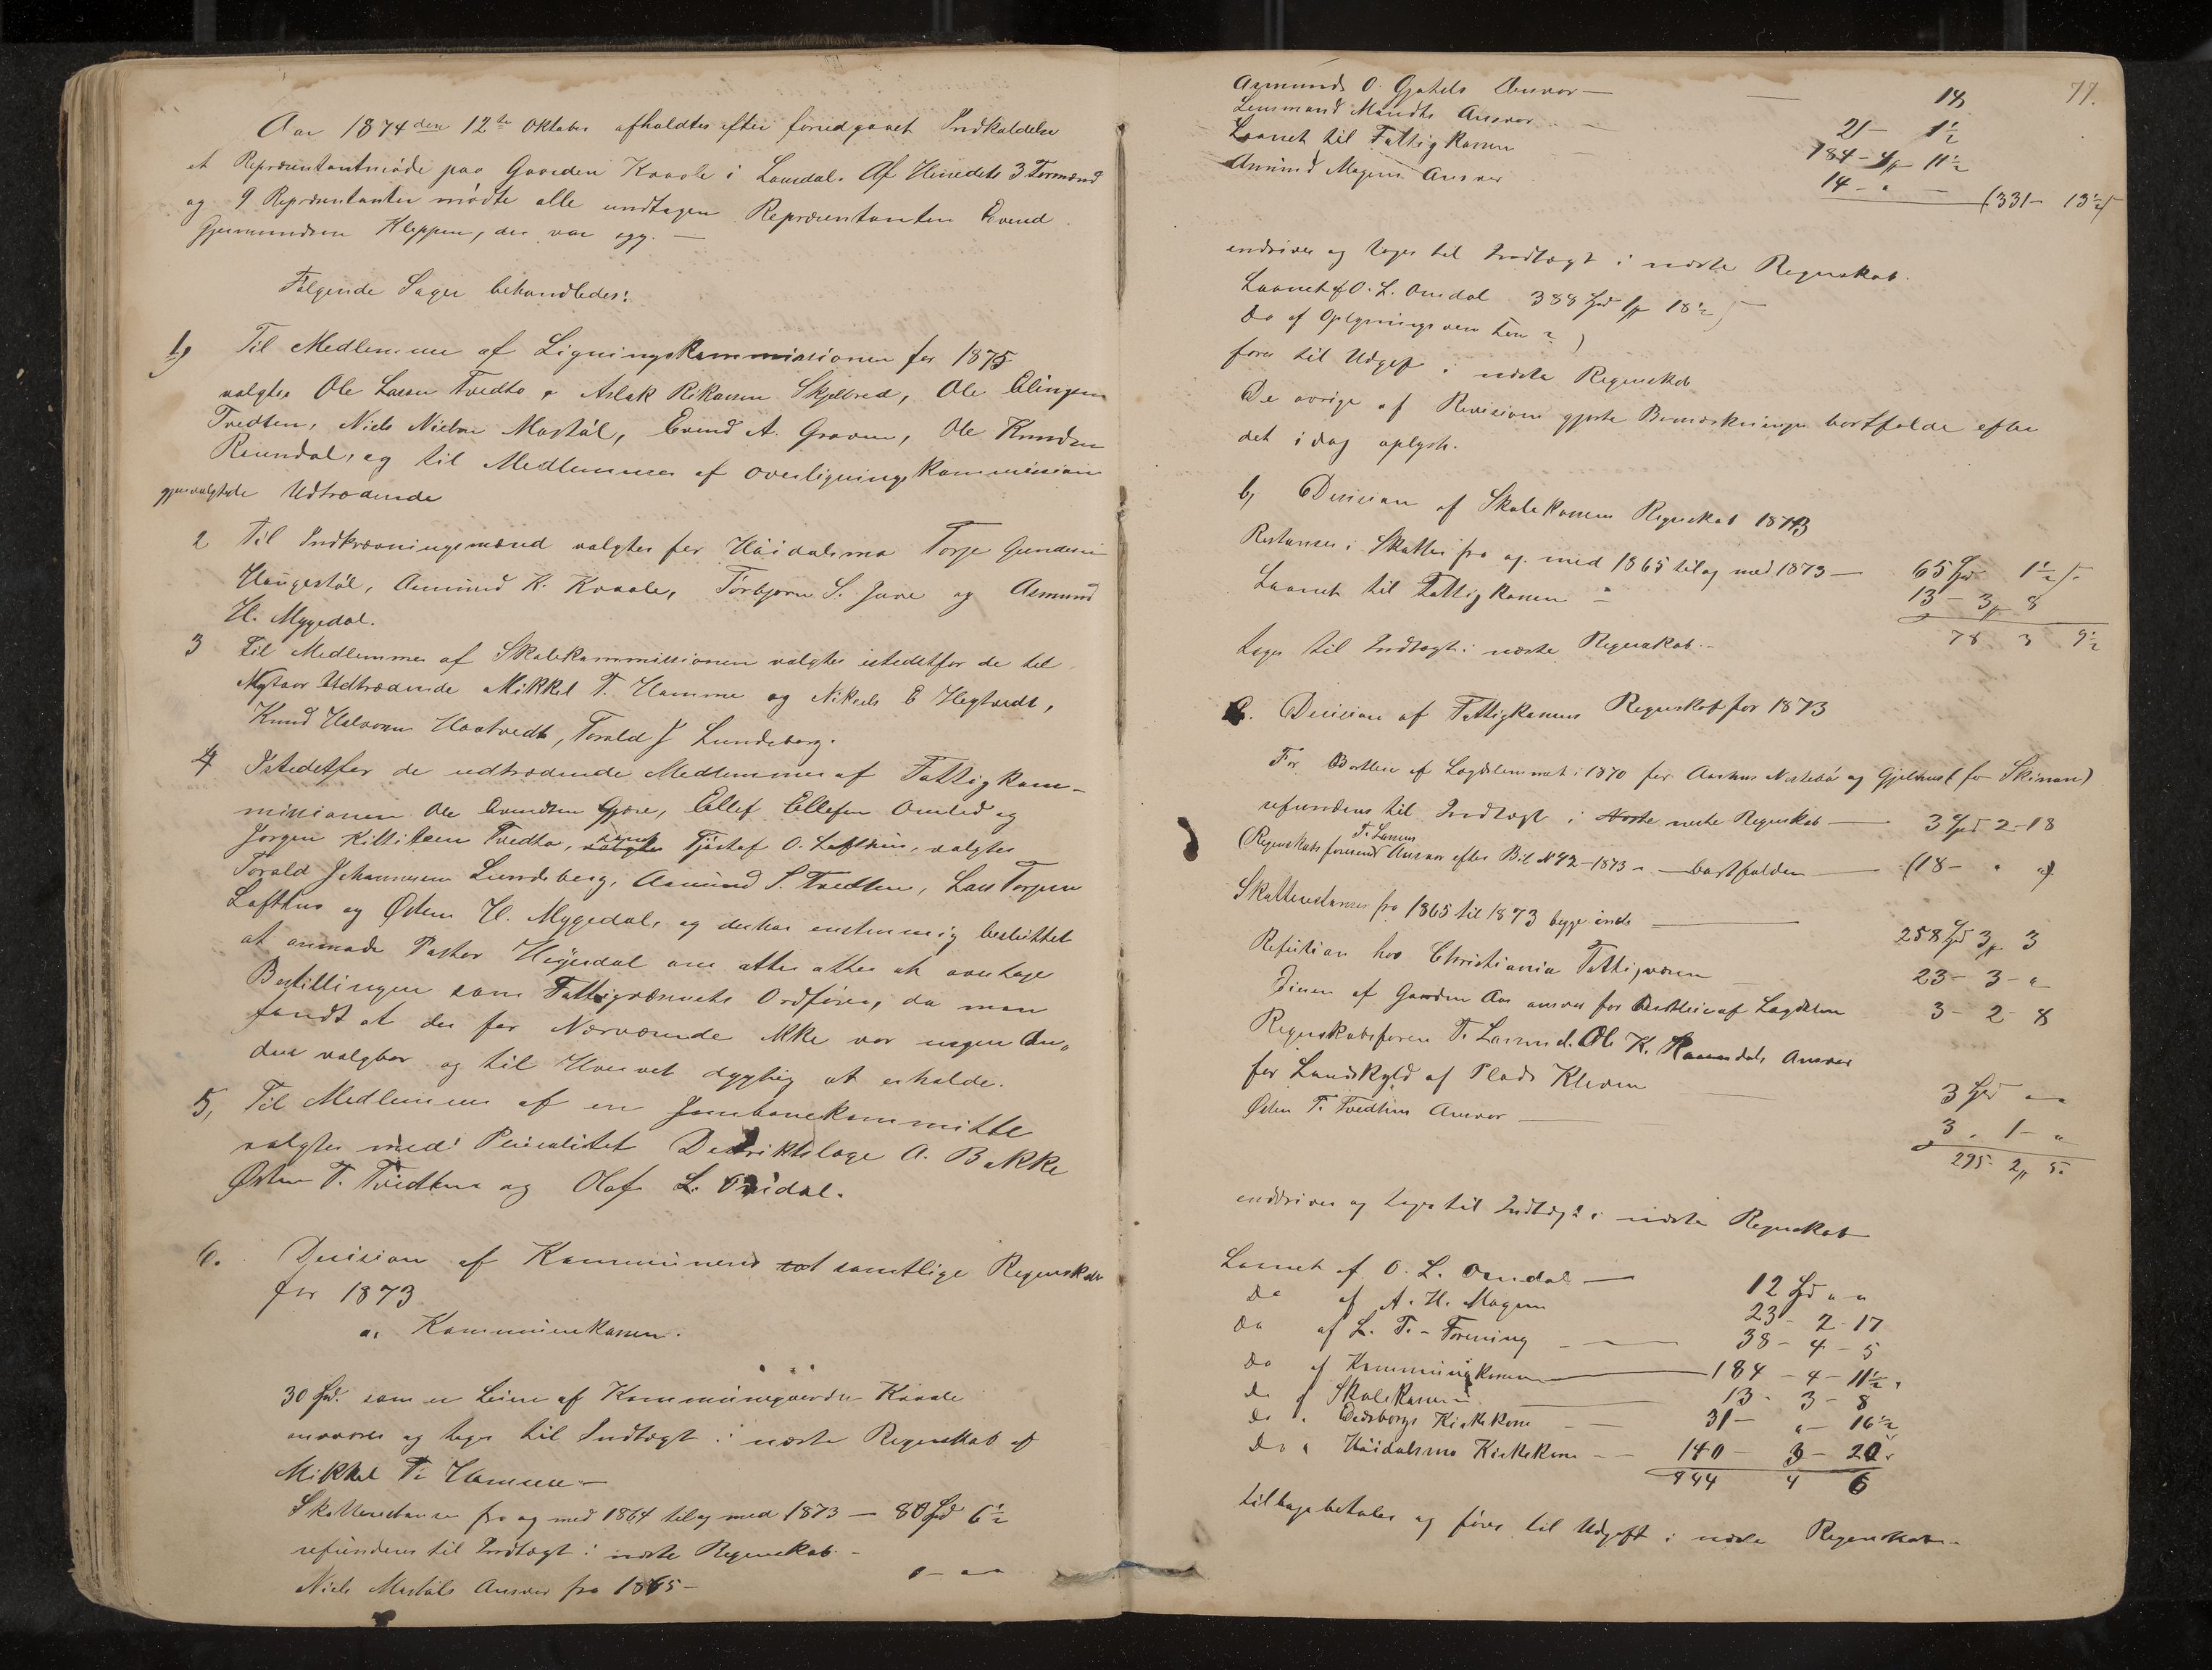 Aar 1874 den 12te Oktober afholdtes efter forudgaaet Indkaldelse
et Repræsentantmøde paa Gaarden Kraale i Laurdal. Af Herredets 3 Formænd
og 9 Repræsentanter mødte alle undtagen Repræsentanten Evend
Gjermundsen Kleppen, der var syg. —
Følgende Sager behandledes:
1) Til Medlemme af Ligningskommissionen for 1875
valgtes Ole Larsen Tvedto, Aslak Rikarsen Skjelbred, Ole Ellingsen
Tvedten, Niels Nielsen Mostøl, Evend A. Groven, Ole Knudsen
Raundal, og til Medlemmer af Overligningskommission
gjenvalgtede Udtrædende
2 Til Indkrævningsmænd valgtes for Høidalsmo Torje Gundersen
Haugestøl, Asmund K. Kraale, Torbjørn S. Juve og Asmund
H. Myggedal.
3 Til Medlemmer af Skolekommissionen valgtes istedetfor de til
Nytaar Udtrædende Mikkel T. Hamme og Nikuls E Hegtvedt,
Knud Halvorsen Haatvedt, Torald J Lundeberg.
4 Istedetfor de udtrædende Medlemmer af Fattigkom-
missionen Ole Evendsen Gjøre, Ellef Ellefsen Omlid og
Jørgen Kittilsen Tvedto, samt Tjøstof O. Lofthus, valgtes
Torald Johannesen Lundeberg, Asmund S. Tvedten, Lars Torjesen
Lofthus og Østen H. Mygedal, og derhos enstemmig besluttet
at anmode Pastor Høyesdal om atter at overtage
Bestillingen som Fattigvæsenets Ordfører, da man
fandt at der for Nærværende ikke var nogen An-
den valgbar og til Hvervet dygtig at erholde.
5, Til Medlemmer af en Jernbanekommitte
valgtes med Pluralitet Distriktslæge A. Bakke
Østen T. Tvedten og Olaf L. Omdal.
6. Decision af Kommunens samtlige Regnskaber
for 1873
a. Kommunekassen.
30 Spd. som er Leien af Kommunegaarden Kraale
ansvares og tages til Indtægt i næste Regnskab af
Mikkel T. Hamme —
Skatterestanser fra og med 1864 til og med 1873 — 80 Spd 6½
refunderes til Indtægt i næste Regnskab. —
Niels Mostøls Ansvar fra 1865 —
77.
Asmund O. Gjøtils Ansvar — 14
Lensmand Mandts Ansvar 21 — 1½
Laanet til Fattigkassen 184 - 4 11½
Asmund Mogens Ansvar 14 - „ — (331 — 13½)
inddrives og tages til Indtægt i næste Regnskab.
Laanet af O. L. Omdal 388 Spd 1 18½
Do af Oplysningsvæsenet
føres til Udgift i næste Regnskab
De øvrige af Revisionen gjorte Bemærkninger bortfalde efter
det idag oplyste.
b, Decision af Skolekassens Regnskab 1873
Restanser i Skatter fra og med 1865 til og med 1873 — 65 Spd 1½
Laanet til Fattigkassen 13 — 3 8
78 3 9½
tages til Indtægt i næste Regnskab. —
c. Decision af Fattigkassens Regnskab for 1873
For Bortleie af Lægdslemmet i 1870 for Aashus Nestebø og Gjelhus (for Skinnan)
refunderes til Indtægt i næste Regnskab — 3 Spd 2 - 18
(Regnskabsføreren T. Larsens Ansvar efter Bil. N 42 - 1873 — bortfalder — (18 — „ „)
Skatterestanser fra 1865 til 1873 begge incl. — 258 Spd 3 3
Refusion hos Christiania Fattigvæsen 23 — 3 - „
Eieren af Gaarden Aas ansvar for Bortleie af Lægdslem 3 — 2 - 8
Regnskabsfører T. Larsen d. Ole K. Raundals Ansvar
for Landskyld af Plads Kleven 3 Spd „ „
Østen T. Tvedtens Ansvar — 3 „ 1 - „
295 - 2 5.
inddrives og tages til Indtægt i næste Regnskab
Laanet af O. L. Omdal — 12 Spd „ „
Do af A. H. Mogen 23 - 2 - 17
Do af L. T. - Forening — 38 — 4 — 5
Do af Kommunekassen — 184 — 4 — 11½
Do af Skolekassen — 13 - 3 — 8
Do „ Eidsborgs Kirkekasse — 31 — „ — 16½
Do „ Høidalsmo Kirkekasse — 140 — 3 — 20
444 4 6
tilbagebetales og føres til Udgift i næste Regnskab —